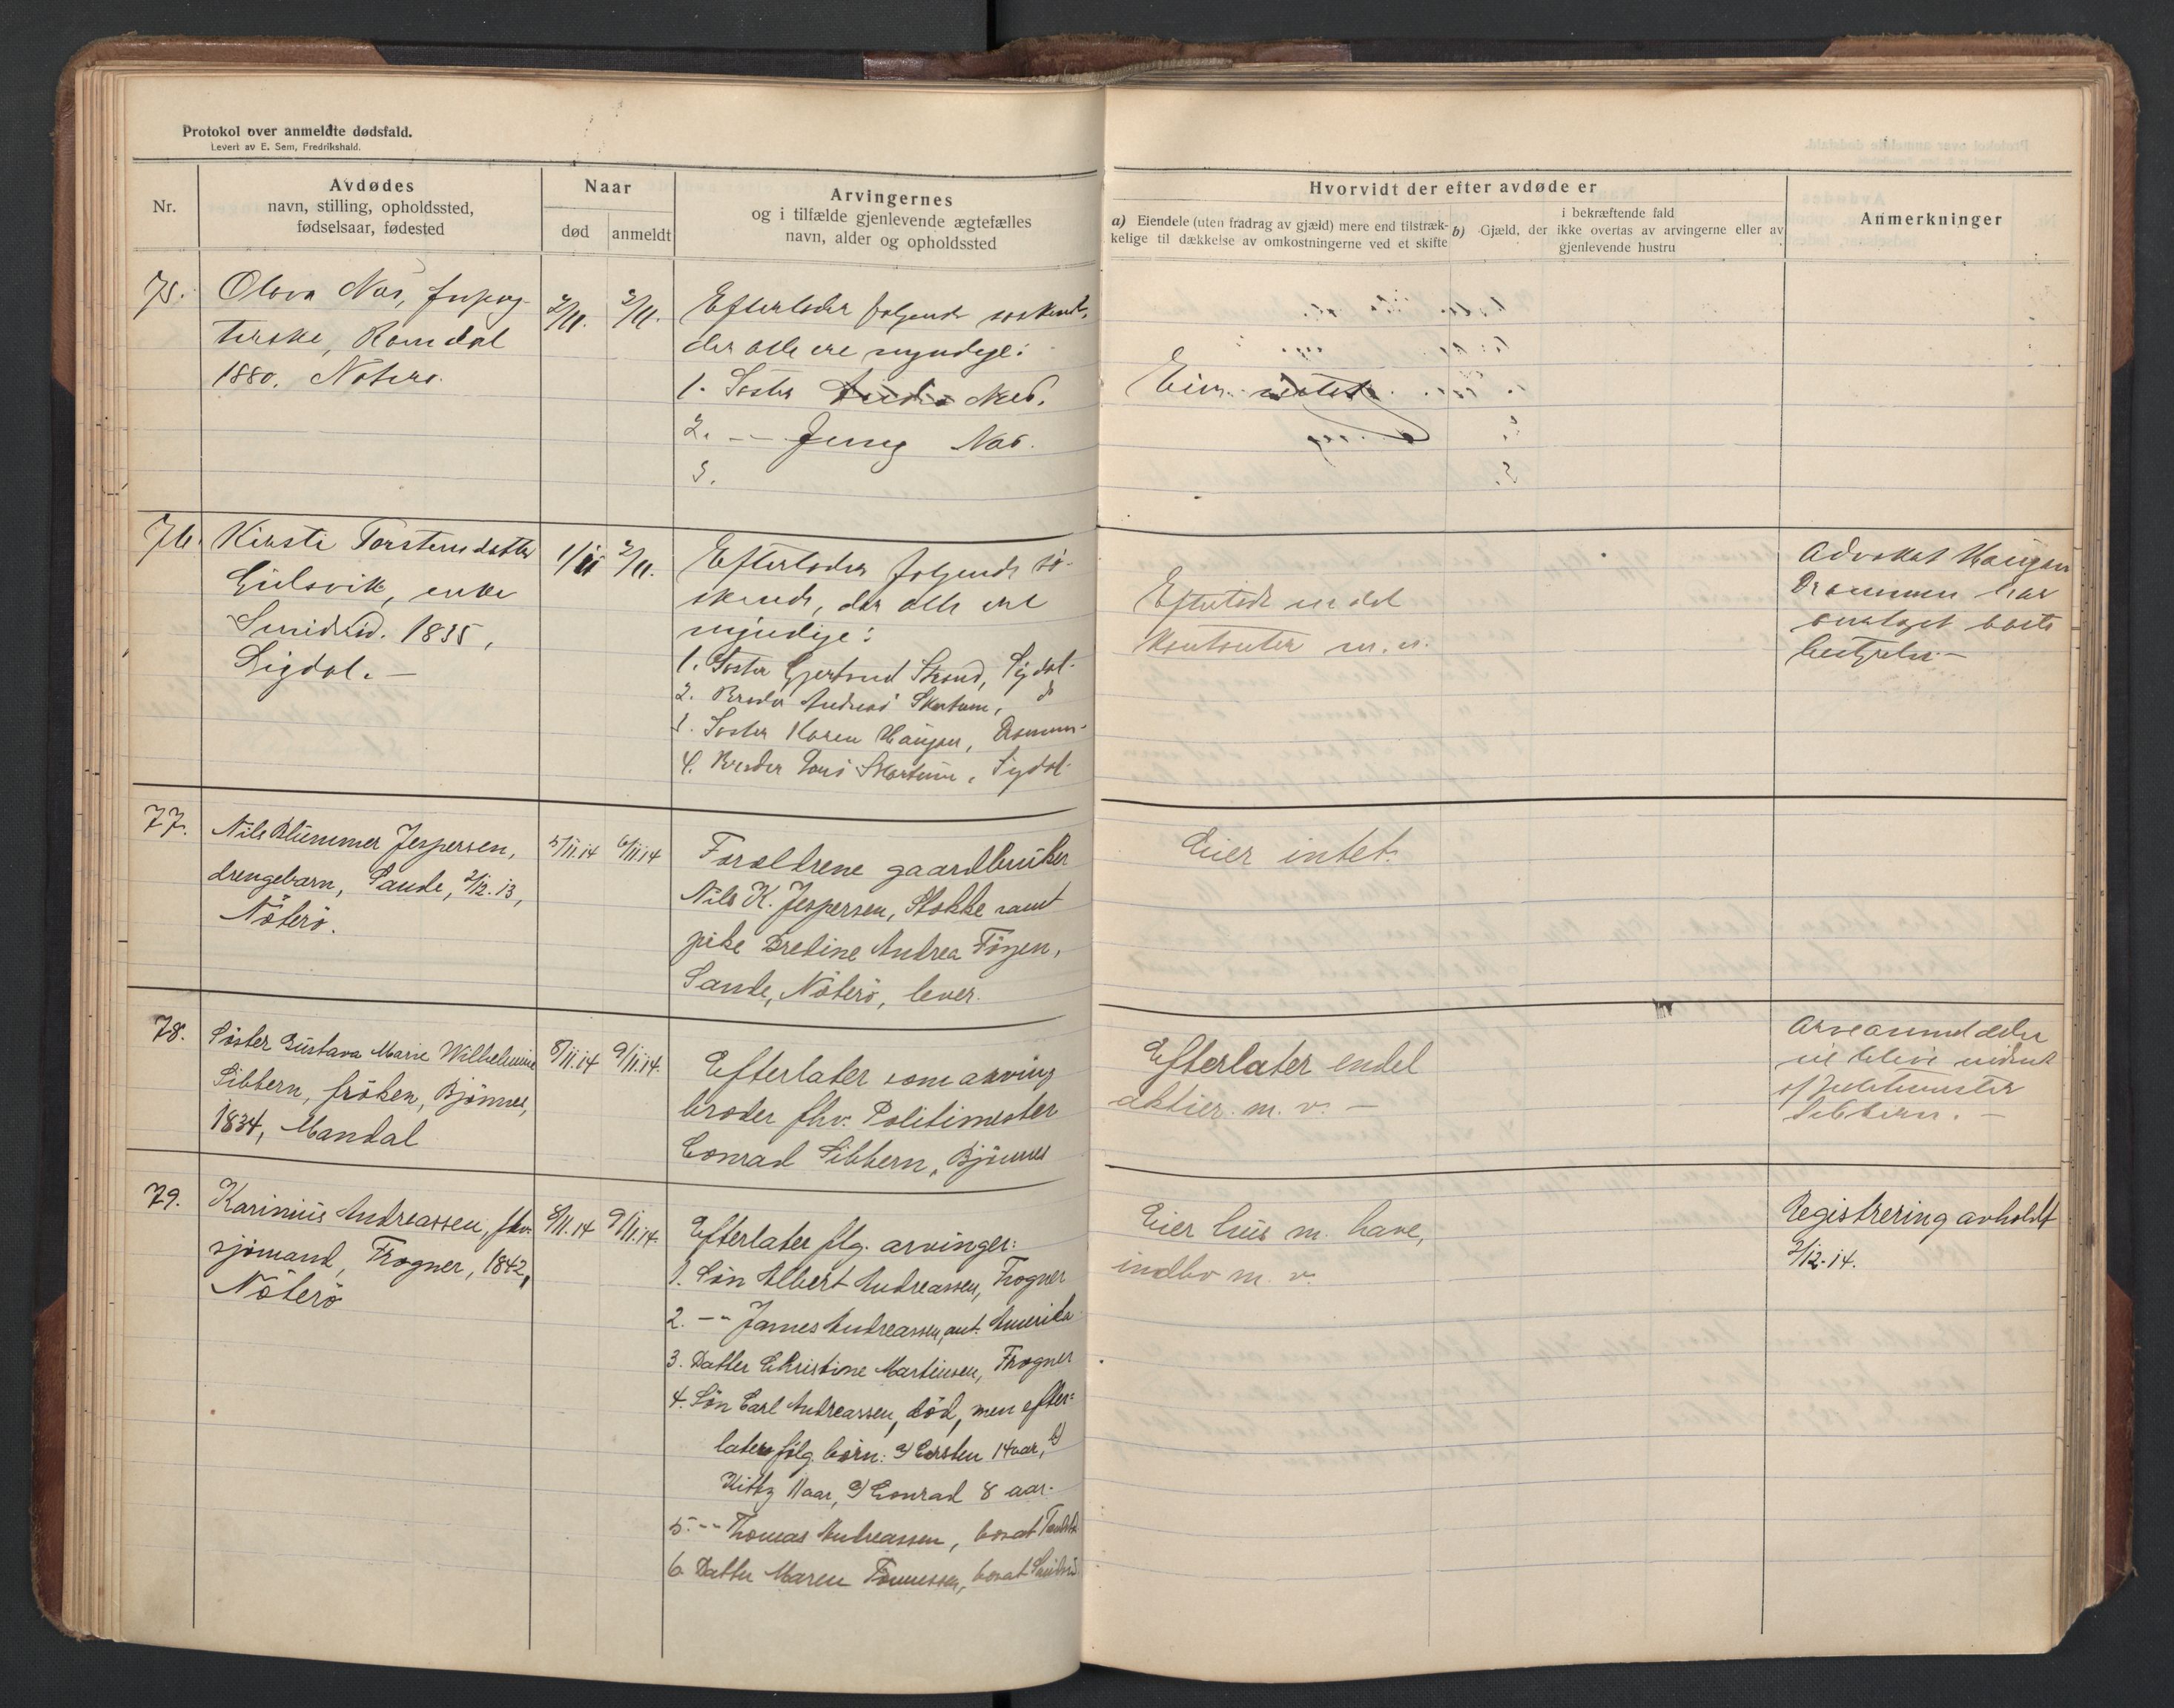 Protokol over anmeldte dødsfald.
Levert av E. Sem, Fredrikshald.
Nr.
Avdødes
navn, stilling, opholdssted,
fødselsaar, fødested
Naar
død
anmeldt
Arvingernes
og i tilfælde gjenlevende ægtefælles
navn, alder og opholdssted
Hvorvidt der efter avdøde er
a) Eiendele (uten fradrag av gjæld) mere end tilstræk-
kelige til dækkelse av omkostningerne ved et skifte
b) Gjæld, der
i bekræftende fald
ikke overtas av arvingerne eller av
gjenlevende hustru
Anmerkninger
75.
Olava Næs,
Ramdal
1880. Nøterø.
2/11.
3/11.
Efterlader følgende søskende,
der alle ere myndige:
1. Søster Næs.
2. -"- Jenny Næs.
3.
Eier intet
76.
Kirsti Torstensdatter
Gulsvik, enke
Smidsrød. 1835,
Sigdal. -
1/11
2/11.
Efterlader følgende sø-
skende, der alle ere
myndige:
1. Søster Gjertrud Strand, Sigdal.
2. Broder Andreas Skartum, do
3. Søster Karen Haugan, Drammen.
4. Broder Lars Skartum, Sigdal.
Efterlod en del
Kontanter m.m.
Advokat Haugan
Drammen har
bobe
bestyrelse. -
77.
Nils Blümmer Jespersen,
drengebarn, Sande, 2/12.13,
Nøterø.
5/11.14
6/11.14
Forældrene gaardbruker
Nils K. Jespersen, Stokke samt
pike Bredine Andrea Tönjen,
Sande, Nøterø, lever.
Eier intet.
78.
Søster Gustava Marie Wilhelmine
Sibbern, frøken, Bjönnes,
1834, Mandal
8/11.14
9/11.14.
Efterlater som arving
broder fhv. Politimester
Conrad Sibbern, Bjönnes
Efterlater endel
aktier. m. v. -
Arveanmeldelse
vil blive
af Politimester
Sibbern. -
79.
Karinius Andreassen, fhv.
sjömand, Frogner, 1842,
Nøterø
8/11.14
9/11.14.
Efterlater flg. arvinger:
1. Sön Albert Andreassen, Frogner
2. -"- James Andreassen, ant. Amerika
3. Datter Christine Martinsen, Frogner
4. Sön Carl Andreassen, död, men efter=
later fölg. børn: a) Carsten 14 aar, b)
Kitty 11 aar, c) Conrad 8 aar.
5. -"- Thomas Andreassen, bosat
6. Datter Maren Tönnessen, bosat
Eier hus m. have,
indbo m. v.
Registrering avholdt
2/12-14.